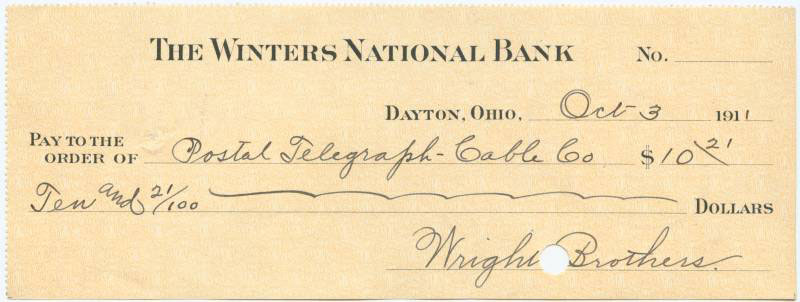 THE WINTERS NATIONAL BANK No.
DAYTON, OHIO, Oct 3 1911
PAY TO THE
ORDER OF Postal Telegraph-Cable Co $10 21
Ten and 21/100 DOLLARS
Wright Brothers.